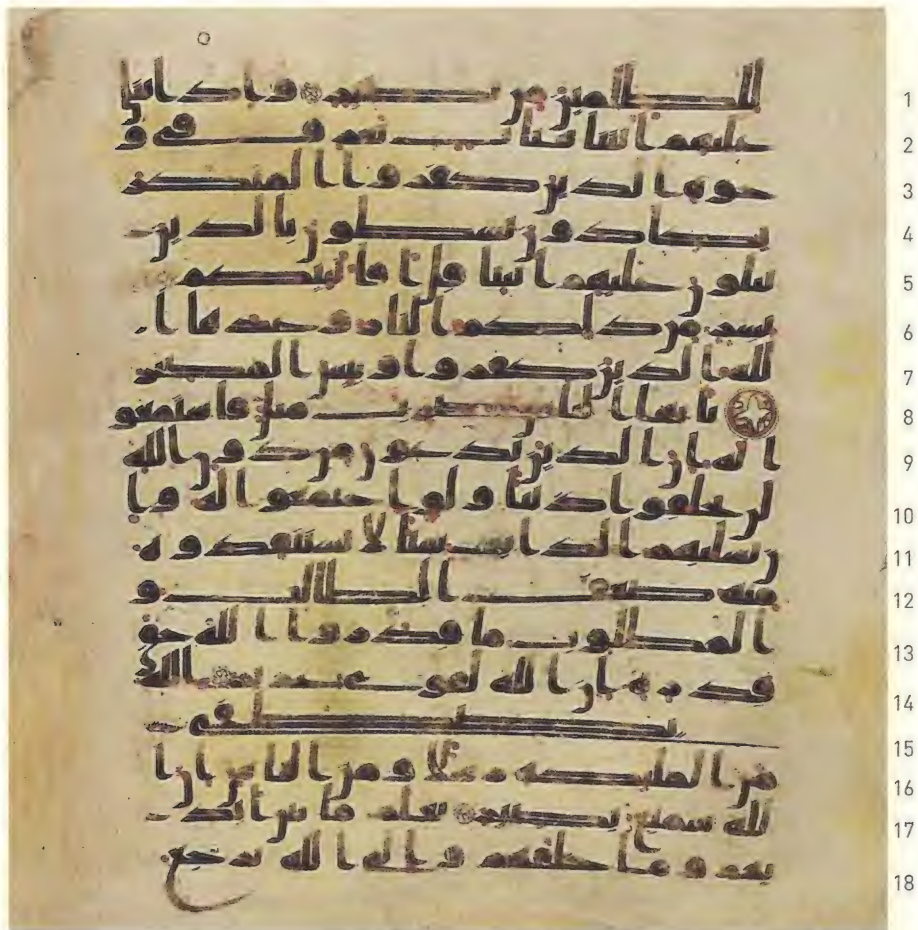 للظلمين من نصير واذا تتلى 1
عليهم ايتنا بينت تعرف في و 2
جوه الذين كفروا المنكر 3
يكادون يسطون بالذين 4
يتلون عليهم ايتنا قل افانبيكم 5
بشر من ذلكم النار وعدها ا 6
لله الذين كفروا وبيس المصير 7
يايها الناس ضرب مثل فاستمعو 8
ا له ان الذين تدعون من دون الله 9
لن يخلقوا ذبابا ولو اجتمعوا له وا 10
ن يسلبهم الذباب شيا لا يستنقذوه 11
منه ضعف الطالب و 12
المطلوب ما قدروا الله حق 13
قدره ان الله لقوي عزيز الله 14
يصطفي 15
من الملئكة رسلا ومن الناس ان ا 16
لله سميع بصير يعلم ما بين ايد 17
يهم وما خلفهم والى الله ترجع 18